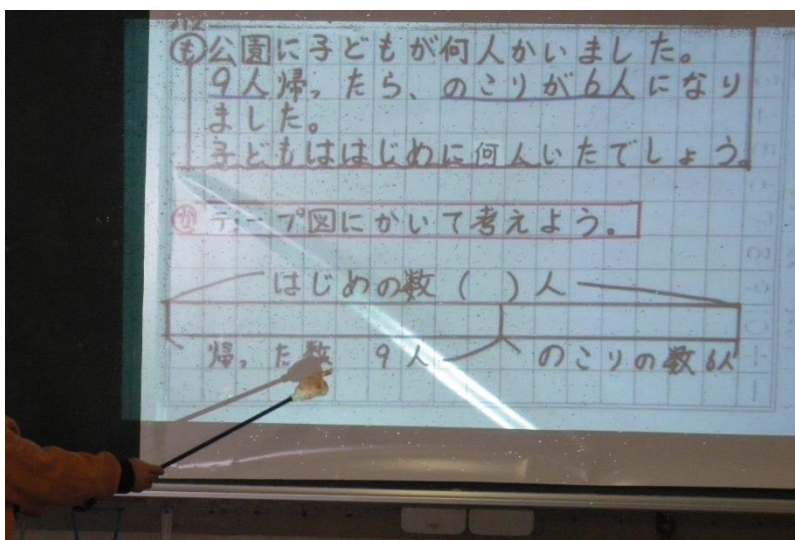 も 公園に子どもが何人かいました。
9人帰ったら、のこりが6人になり
ました。
子どもははじめに何人いたでしょう。
テープ図にかいて考えよう。
はじめの数（　）人
帰った数 9人 のこりの数6人